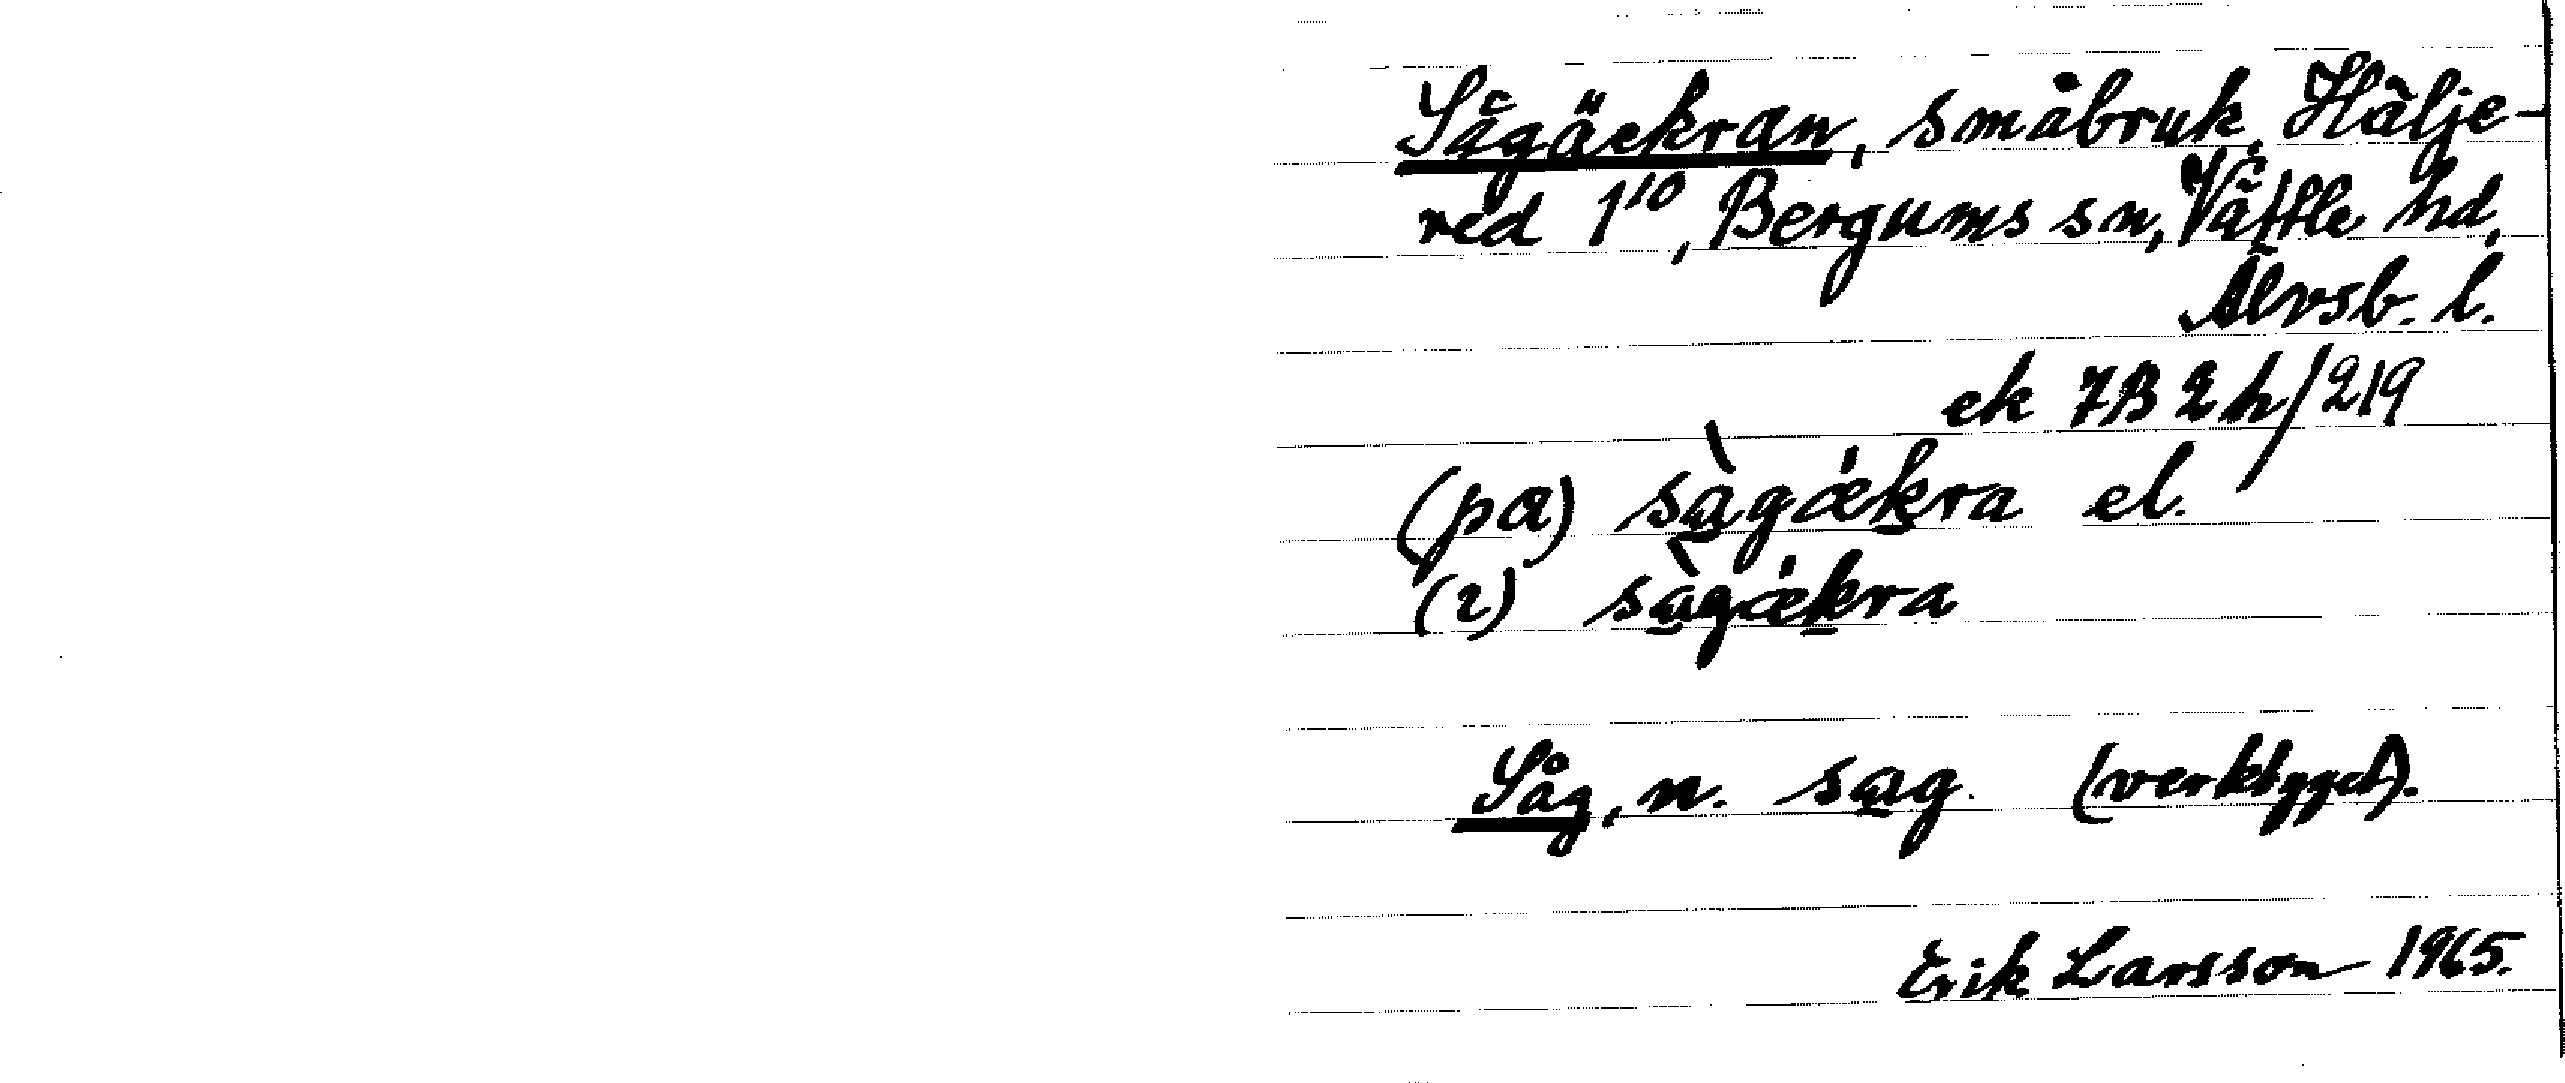 Sågäckran, småbruk, Hälje-
red 1¹⁰, Bergums sn, Vättle hd,
Älvsb. l.
ek 7B 2h/219
(pα) sàgækra el.
(ɩ) sàgækra
Såg, n. sag. (verktyget).
Erik Larsson 1965.